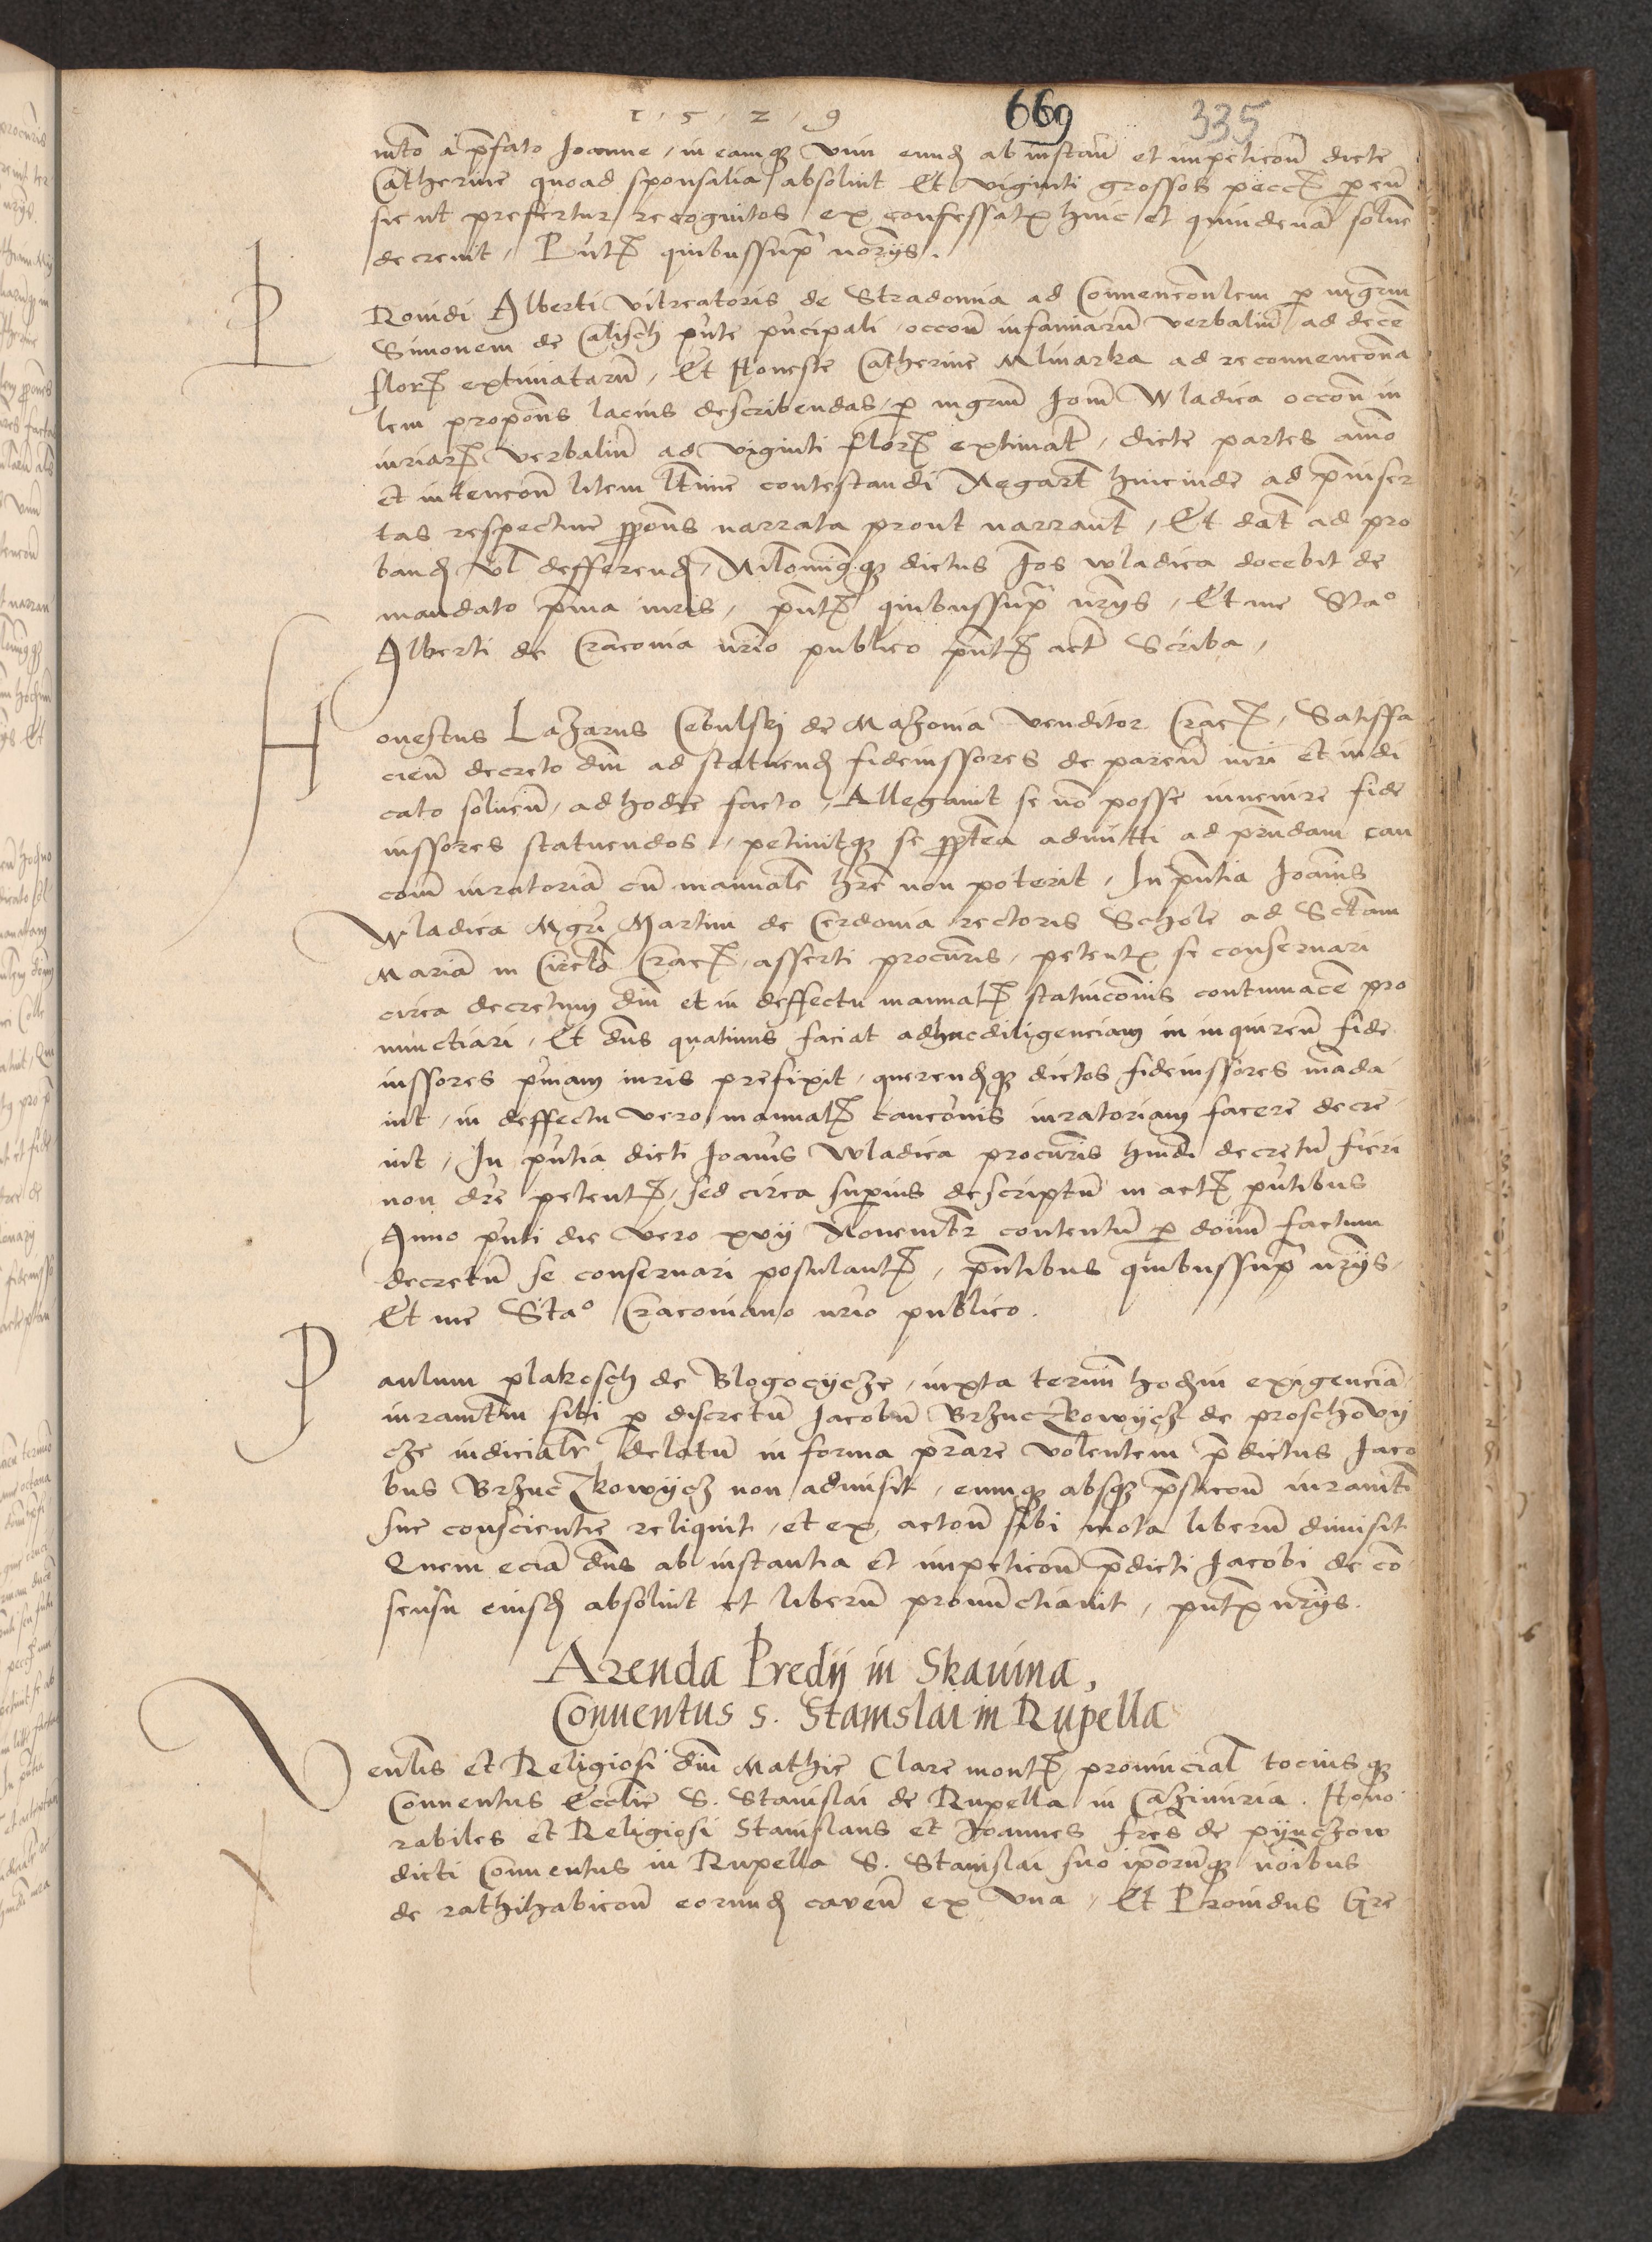 1.5.2.9
669
335
mto a pfato Joanne, in eamq vim eund ab instan et impeticon dicte
Catherine quoad sponsalia absoluit Et viginti grossos pecc p eum
sicut prefertur recognitos ex confessat hinc et quindenam solue
decreuit, Pntt quibussup noriis.
Prouidi Alberti vitreatoris de Stradomia ad Conuenconlem p mgrm
Simonem de Calisch pnte principali occon infamiarum verbalium ad dece
flor extimatarum, Et Honeste Catherine Mlinarka ad reconuencona
lem propons lacius describendas, p mgrm Joannem Wladica occon in
iuriar verbalium ad viginti flor extimat, dicte partes animo
et intencon litem ltime contestandi Negarunt hincinde ad prinser
tas respectiue ppons narrata prout narrant, Et dat ad pro
band vl defferend, Nilominq dictus Jos Wladica docebit de
mandato pma iuris, pntt quibussup nriis, Et me Stao
Alberti de Cracouia nrio publico pntt act Scriba,
Honestus Lazarus Cebulski de Mazouia venditor Crac, Satisfa
cien decreto dni ad statuend fideiussores de paren iuri et iudi
cato soluen, ad hodie facto, Allegauit se no posse inuenire fide
iussores statuendos, petiuitq se pptea admitti ad prndam cau
com iuratoriam cum manuale hre non poterit, In pntia Joannis
Wladica Mgri Martini de Cerdonia rectoris Schole ad Sctam
Mariam in Circlo Crac, asserti procuris, petent se conseruari
circa decretum dni et in deffectu manual statuiconis contumacem pro
nunctiari, Et dns quatinus faciat adhuc diligenciam in inquiren fide
iussores pmam iuris prefixit, querendq dictos fideiussores manda
uit, in deffectu vero manual cauconis iuratoriam facere decre
uit, In pntia dicti Joanis Wladica procuris hmdi decretum fieri
non dre petent, sed circa superius descriptum in act pntibus
Anno pnti die vero xvij Nouembr contentum p dominum factum
decretum se conseruari postulant, pntibus quibussup nriis,
Et me Stao Cracouiano nrio publico.
Paulum plakosch de Blogocycze, iuxta termini hodiern exigenciam
iuramentum sibi p discretum Jacobum Brzuczkowycz de proschovy
cze iudicialr delatum in forma prare volentem pdictus Jaco
bus Brzuczkowycz non admisit, eumq absq pstacon iuramti
sue conscientie reliquit, et ex acton sibi mota liberum dimisit
Quem eciam dns ab instantia et impeticon pdicti Jacobi de con
sensu eiusd absoluit et liberum pronunctiauit, pntt nriis.
Arenda Predij in Skauina,
Conuentus S. Stanislai in Rupella
Venlis et Religiosi dni Mathie Clare mont prouincial tociusq
Conuentus Ecclie S. Stanislai de Rupella in Cazimiria. Hono
rabiles et Religiosi Stanislaus et Joannes fres de pynczow
dicti Conuentus in Rupella S. Stanislai suo ipsorumq noibus
de rathihabicon eorund caven ex vna, Et Prouidus Gre